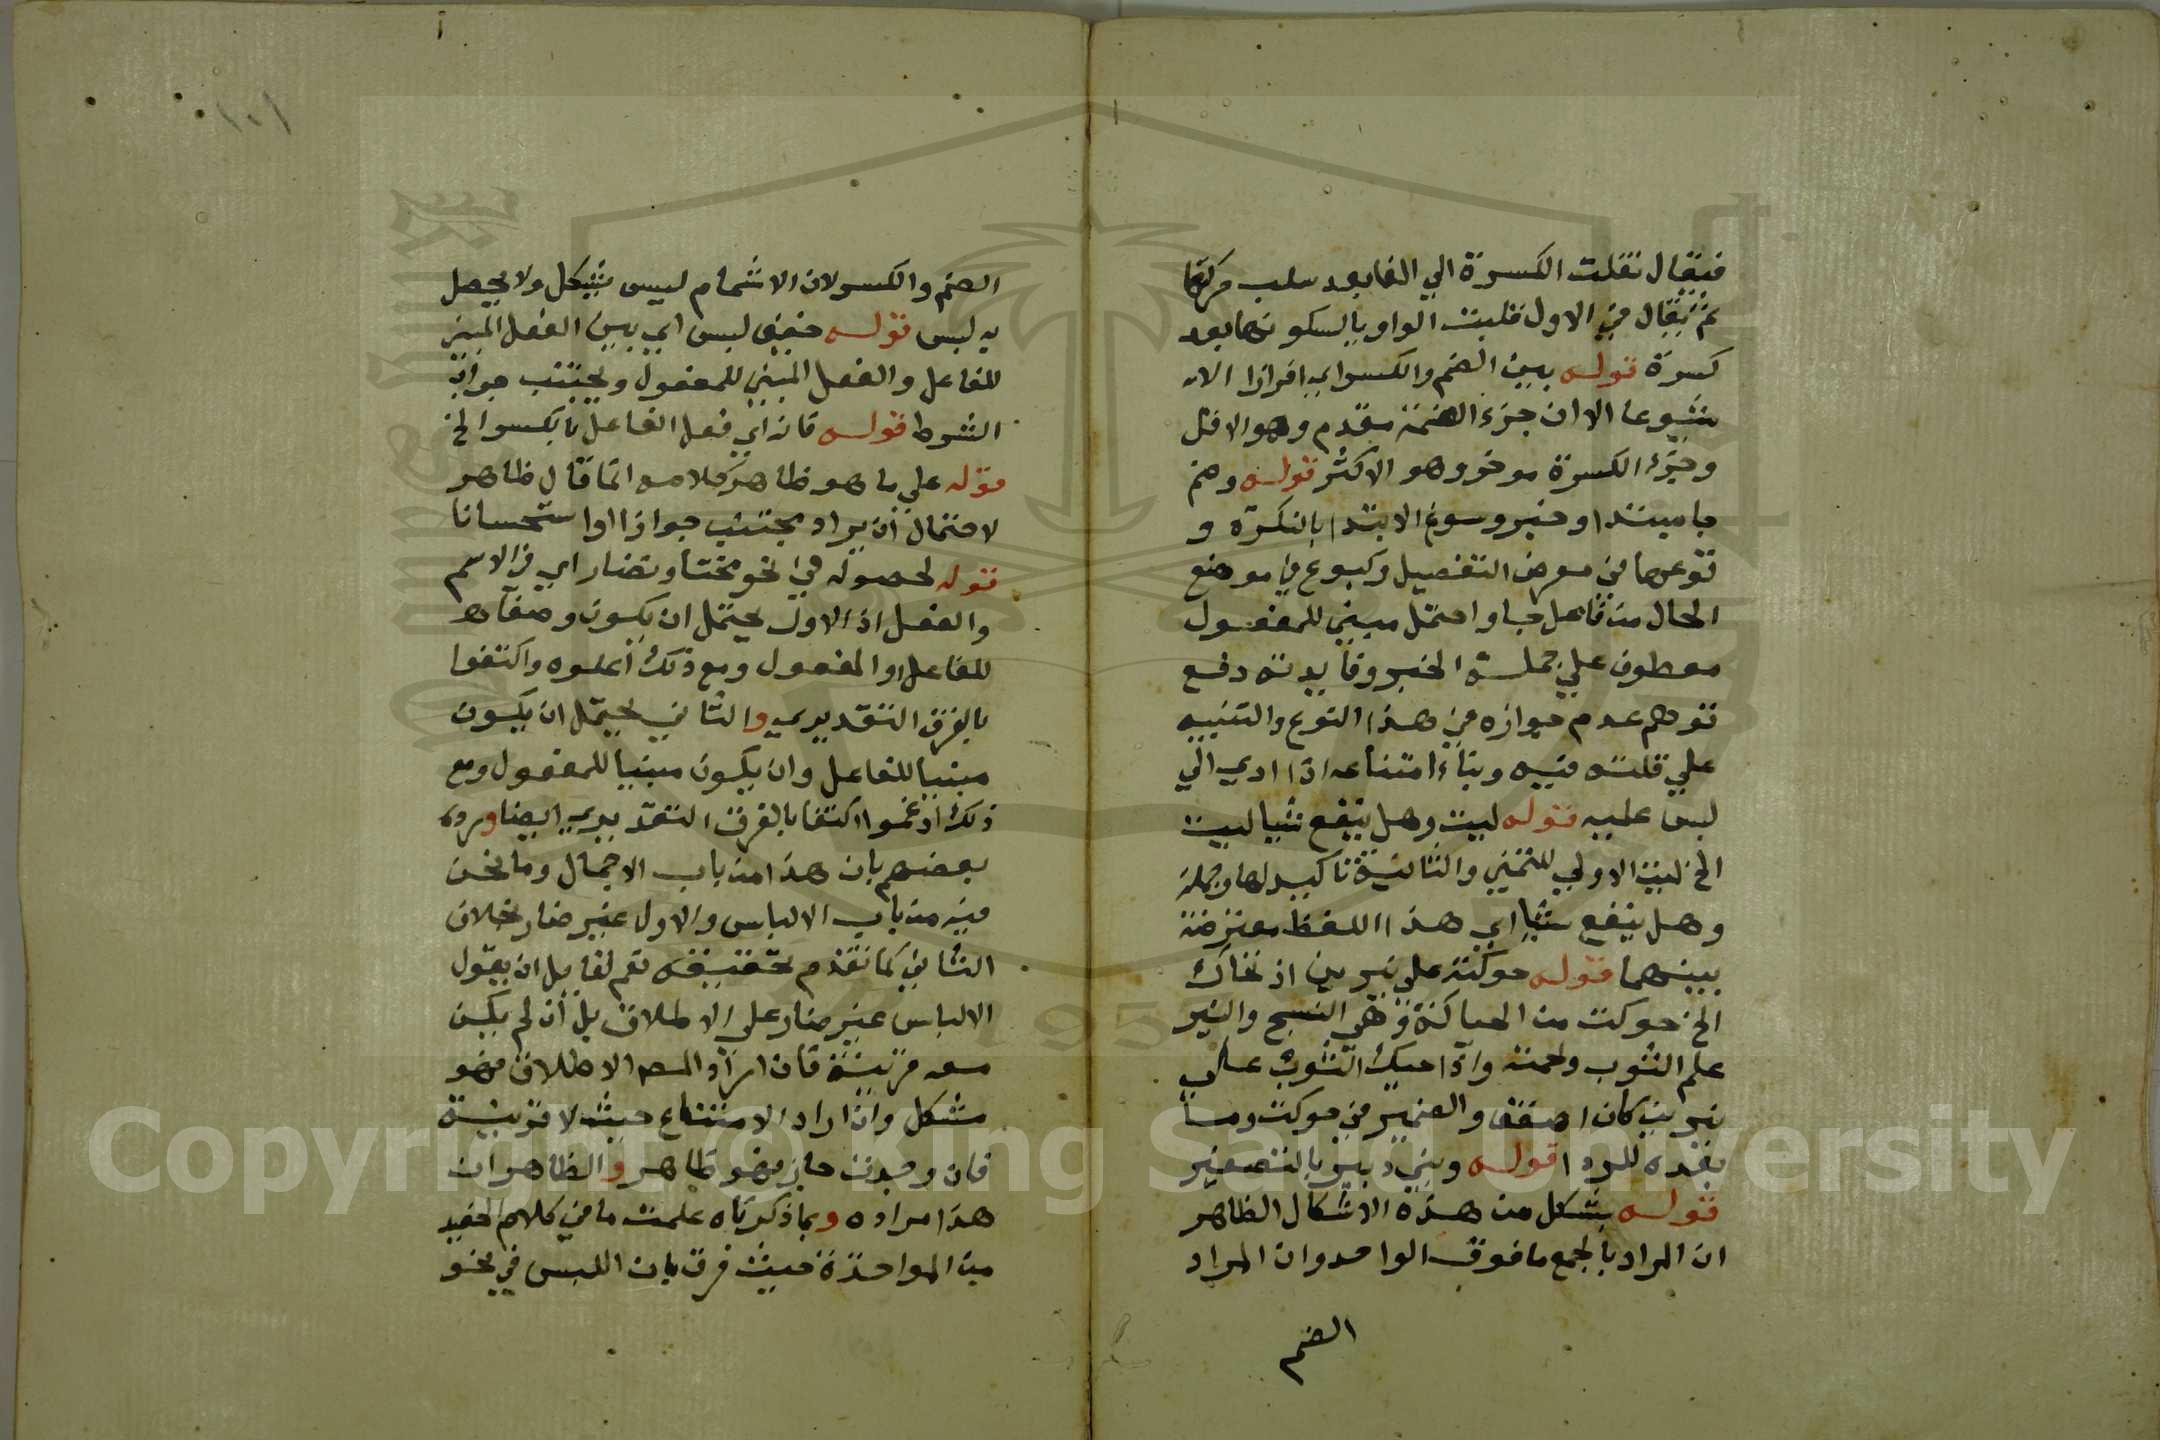 فيقال نقلت الكسرة الي الفا بعد سلب حركتها
ثم يقال في الاول قلبت الواو يا لسكونها بعد
كسرة قوله بين الضم والكسر اي افرازا لانه
شيوعا الا ان جزء الضمة مقدم وهو الاقل
وجزء الكسرة موخر وهو الاكثر قوله وضم
جا مبتدا وخبر وسوغ الابتدا بالنكرة و
توعها في معرض التفصيل وكبوع في موضع
الحال من فاعل جا واحتمل مبني للمفعول
معطوف علي جملة الخبر وفايدته دفع
توهم عدم جوازه في هذا النوع والتنبيه
علي قلته فيه وبناء امتناعه اذا ادي الي
لبس عليه قوله ليت وهل ينفع شيا ليت
الخ ليت الاولي للتمني والثانية تاكيد لها وجملة
وهل ينفع شيا اي هذا اللفظ معترضة
بينهما قوله حوكت علي نيرين اذ تحاك
الخ حوكت من الحياكة وهي النسج والنير
علم الثوب ولحمته واذا حيك الثوب علي
نيرين كان اصفق والضمير في حوكت وما
بعده للردا قوله وبني دبير بالتصغير
قوله بشكل من هذه الاشكال الظاهر
ان المراد بالجمع ما فوق الواحد وان المراد
الضم
الضم والكسر لان الاشمام ليس بشكل ولا يحصل
به لبس قوله خيف لبس اي بين الفعل المبني
للفاعل والفعل المبني للمفعول ويجتنب جواب
الشرط قوله فانه اي فعل الفاعل بالكسر الخ
قوله علي ما هو ظاهر كلامه انما قال ظاهر
لاحتمال ان يراد يجتنب جوازا او استحسانا
قوله لحصوله في نحو مختار وتضار اي في الاسم
والفعل اذ الاول يحتمل ان يكون وصفا
للفاعل او المفعول ومع ذلك اعلوه واكتفوا
بالفرق التقديري والثاني يحتمل ان يكون
مبنيا للفاعل وان يكون مبنيا للمفعول ومع
ذلك ادغموا اكتفا بالفرق التقديري ايضا ورده
بعضهم بان هذا من باب الاجمال وما نحن
فيه من باب الالباس والاول غير ضار بخلاف
الثاني كما تقدم تحقيقه نعم لقايل ان يقول
الالباس غير ضار علي الاطلاق بل ان لم يكن
معه قرينة فان اراد المصـ الاطلاق فهو
مشكل وان اراد الامتناع حيث لا قرينة
فان وجدت جاز فهو ظاهر والظاهر ان
هذا مراده وبما ذكرناه علمت ما في كلام الحفيد
من المواخذة حيث فرق بان اللبس في نحو